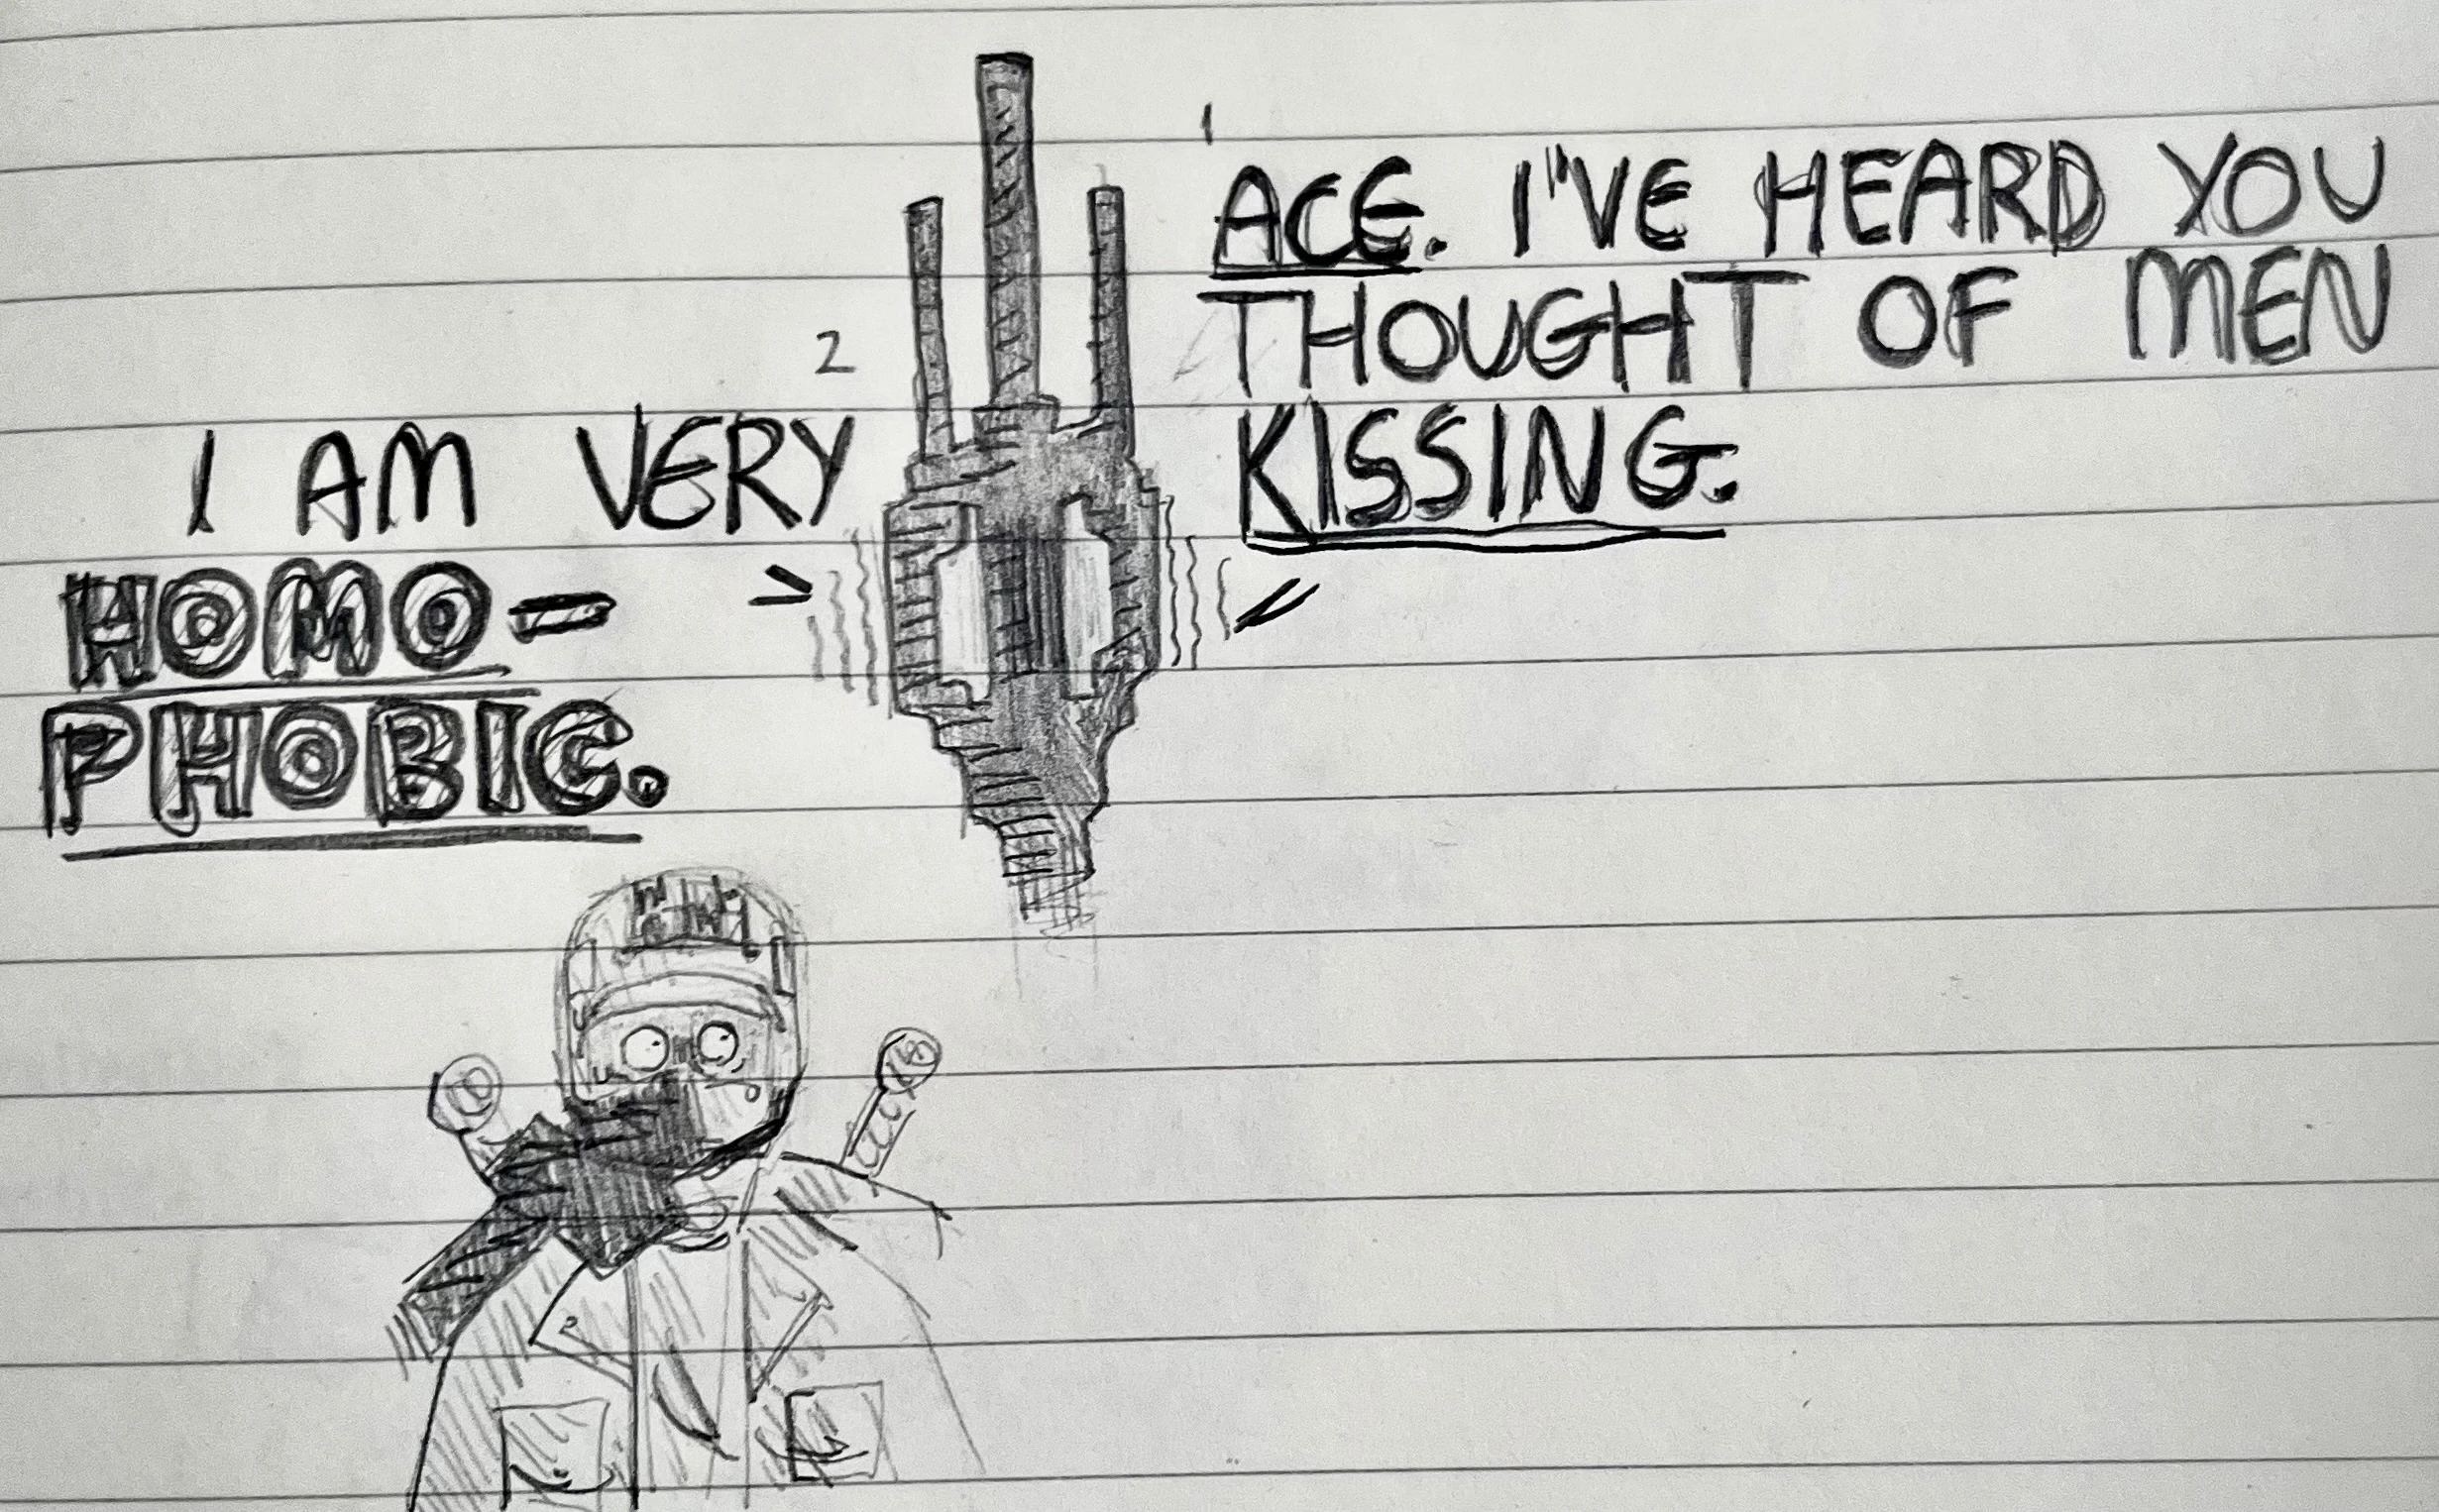 1
ACE. I'VE HEARD YOU
THOUGHT OF MEN
KISSING.
2
I AM VERY
HOMO-
PHOBIC.